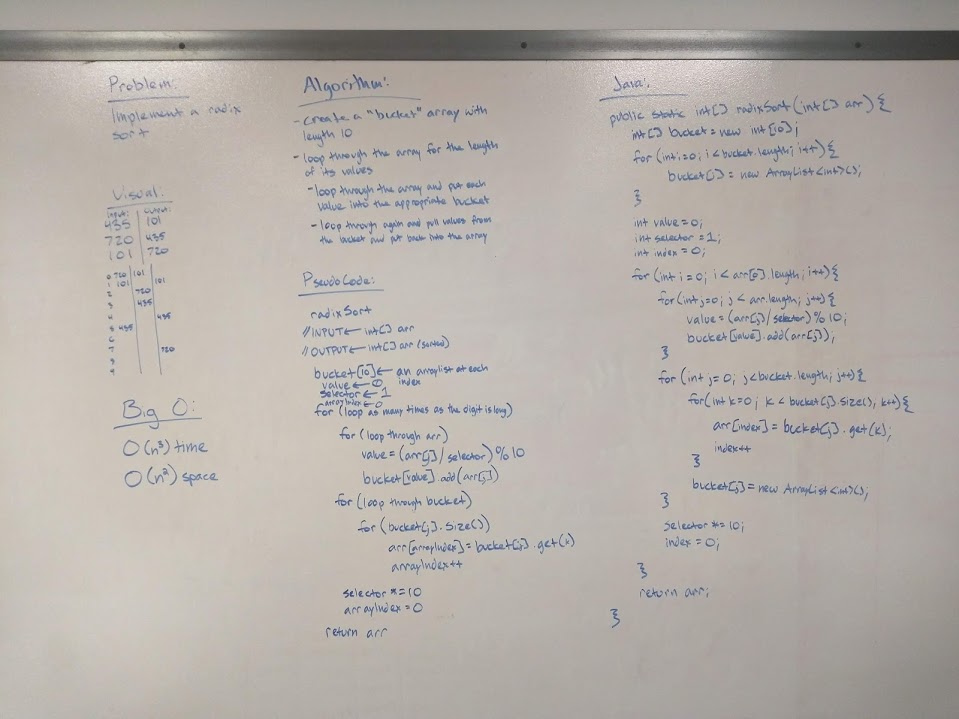 Problem:
Implement a radix
sort
Visual:
Input: Output:
435 101
720 435
101 720
0 720 101
1 101 101
2 720
3 435
4 435
5 435
6
7 720
8
9
Big O:
O(n³) time
O(n²) space
Algorithm:
- create a "bucket" array with
length 10
- loop through the array for the length
of its values
- loop through the array and put each
value into the appropriate bucket
- loop through again and pull values from
the bucket and put back into the array
PseudoCode:
radixSort
// INPUT ← int[] arr
// OUTPUT ← int[] arr (sorted)
bucket[10] ← an arraylist at each
index
value ← 0
selector ← 1
arrayIndex ← 0
for (loop as many times as the digit is long)
for (loop through arr)
value = (arr[j] / selector) % 10
bucket[value].add(arr[j])
for (loop through bucket)
for (bucket[j].size())
arr[arrayIndex] = bucket[j].get(k)
arrayIndex++
selector *= 10
arrayIndex = 0
return arr
Java:
public static int[] radixSort(int[] arr) {
int[] bucket = new int[10];
for (int i=0; i < bucket.length; i++) {
bucket[i] = new ArrayList<int>();
}
int value = 0;
int selector = 1;
int index = 0;
for (int i = 0; i < arr[0].length; i++) {
for (int j=0; j < arr.length; j++) {
value = (arr[j] / selector) % 10;
bucket[value].add(arr[j]);
}
for (int j = 0; j < bucket.length; j++) {
for (int k=0; k < bucket[j].size(), k++) {
arr[index] = bucket[j].get(k);
index++
}
bucket[j] = new ArrayList<int>();
}
selector *= 10;
index = 0;
}
return arr;
}